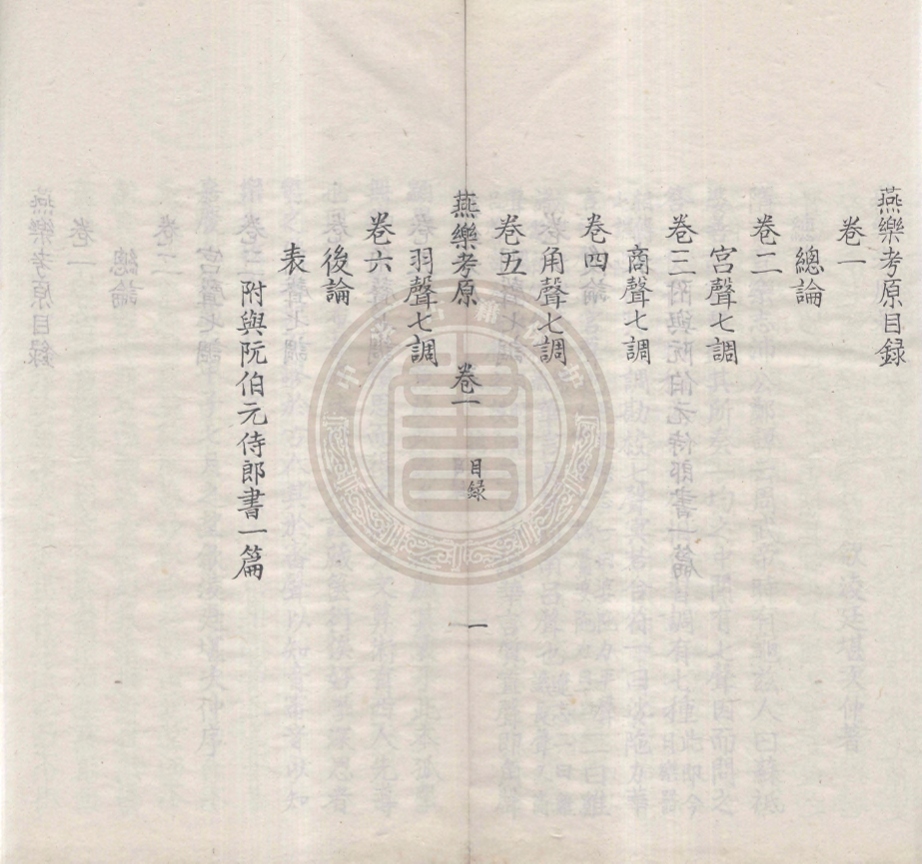 燕樂考原目録
卷一
總論
卷二
宮聲七調
卷三
商聲七調
卷四
角聲七調
卷五
燕樂考原 卷一 目録 一
羽聲七調
卷六
後論
表
附與阮伯元侍郎書一篇